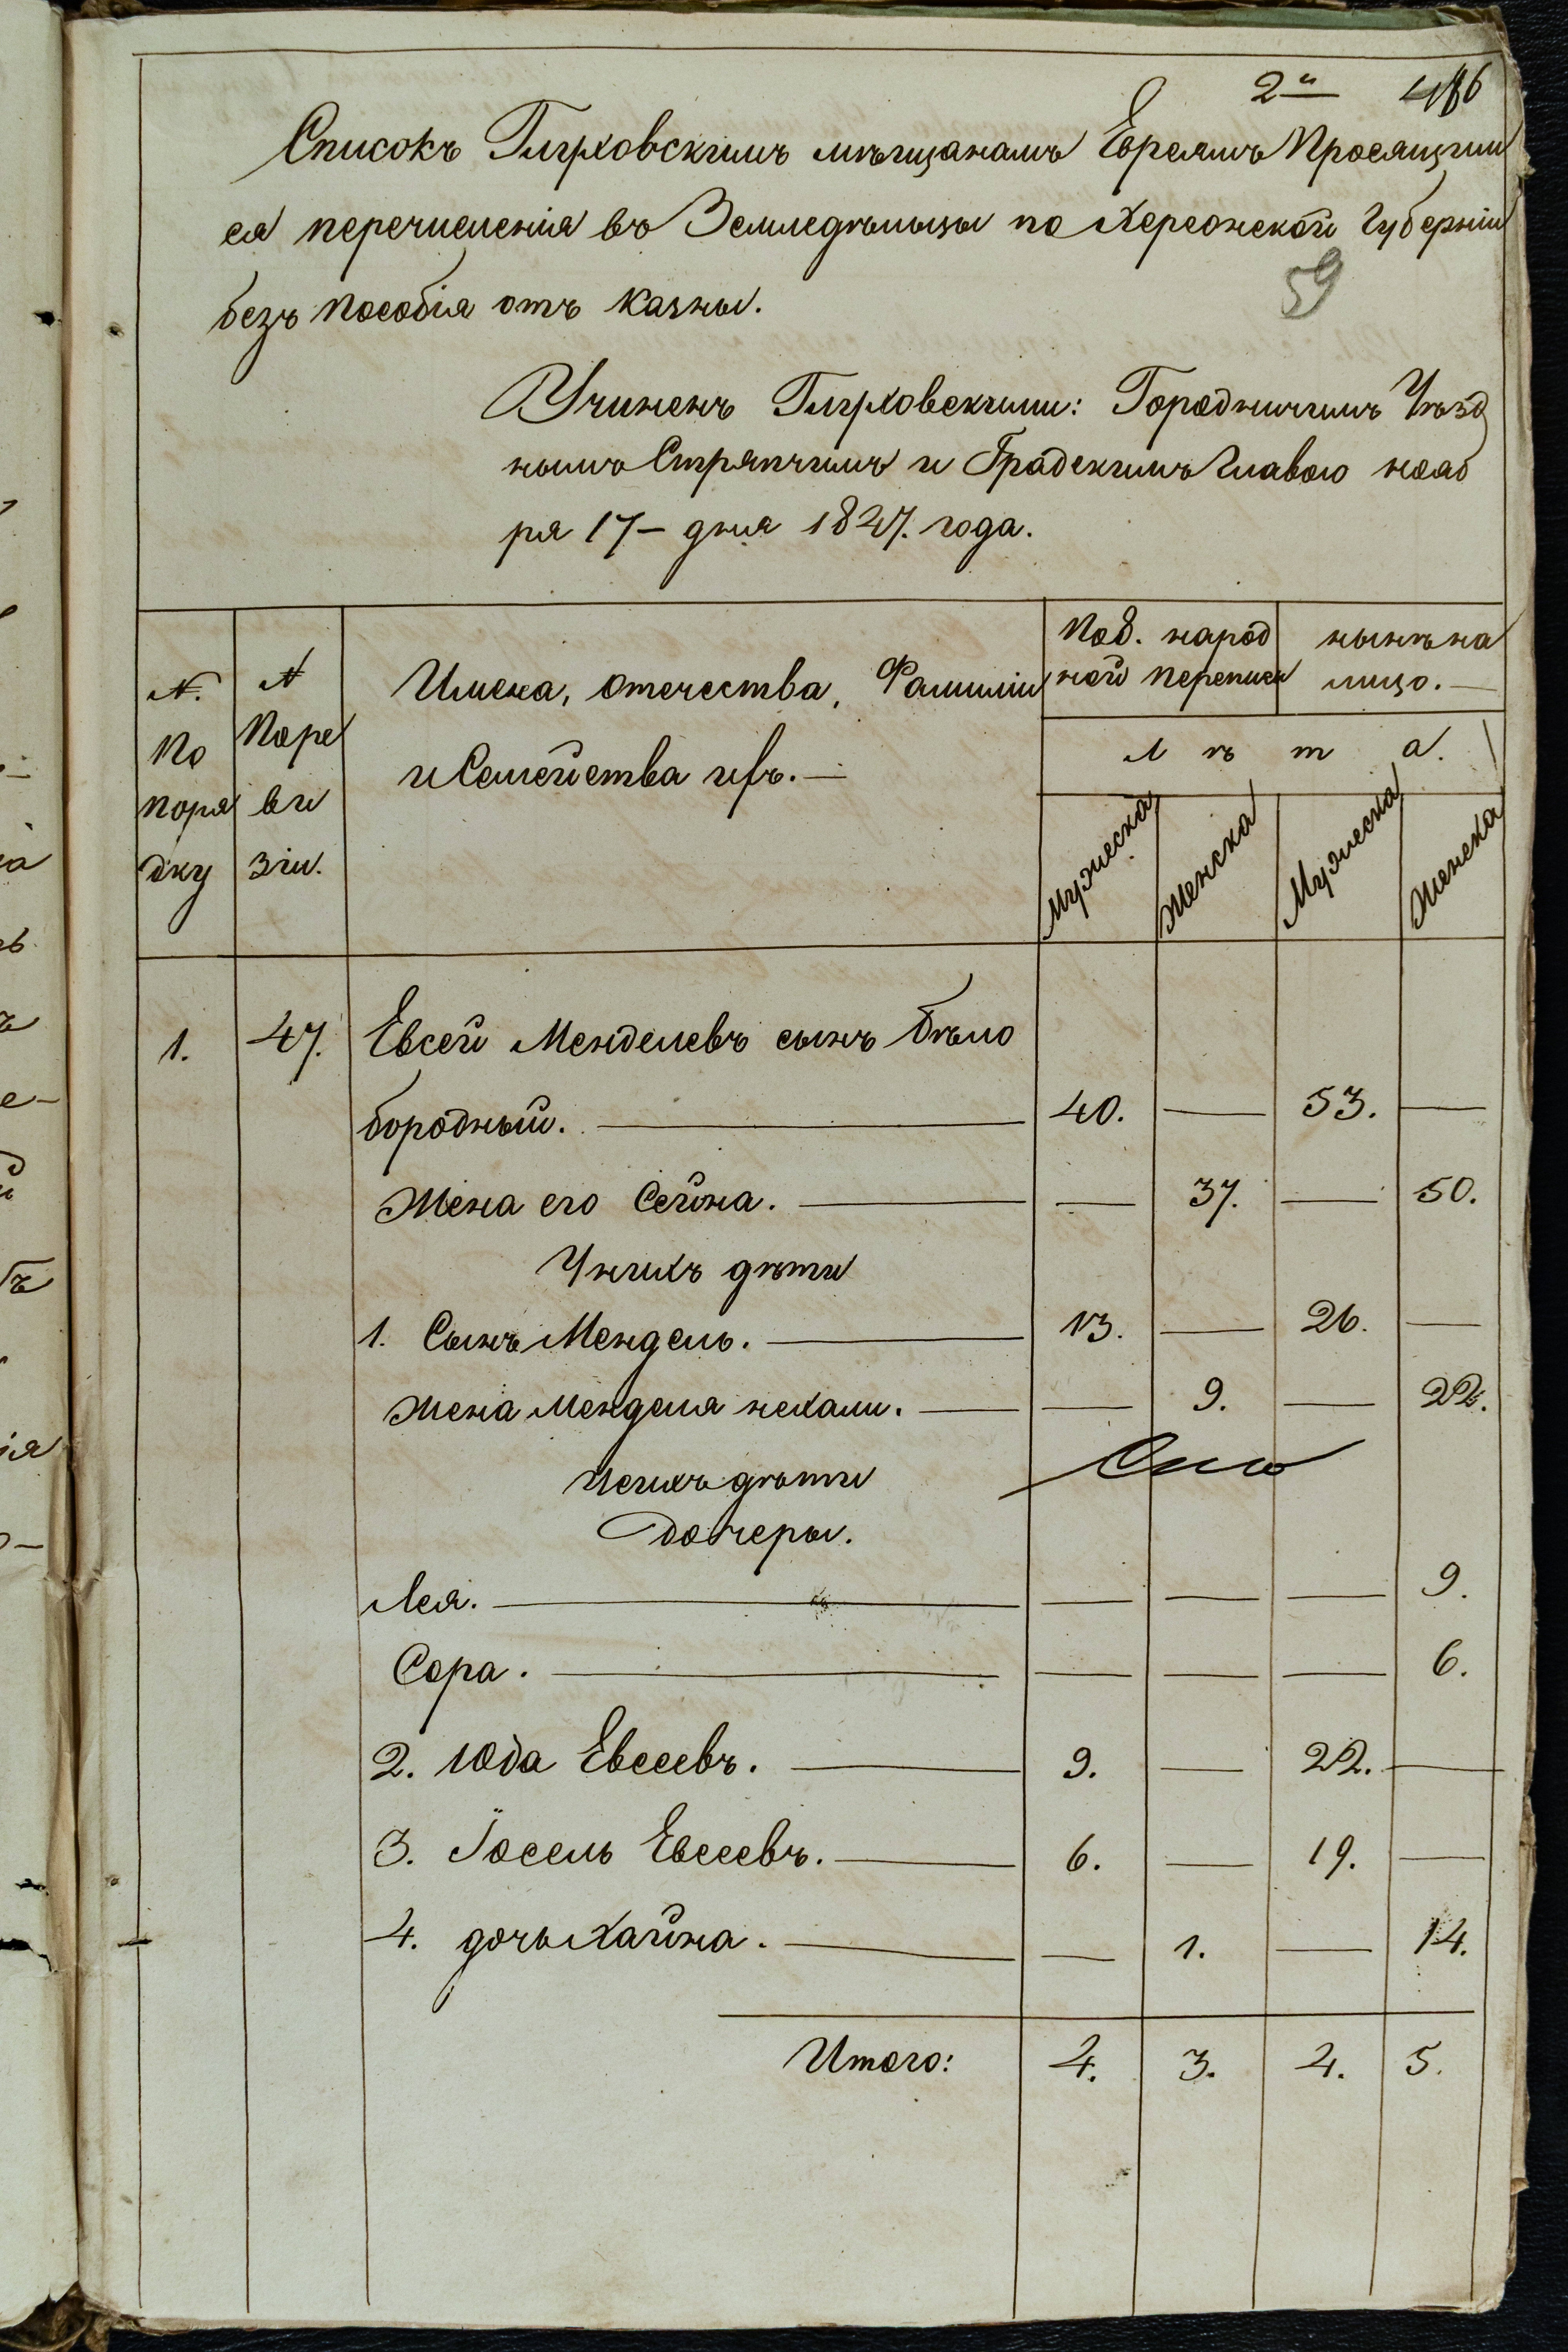 2й
Списокъ Глуховскимъ мѣщанамъ Евреямъ Просящим
ся перечисленія въ Земледѣльцы по Херсонской Губерніи
59
безъ пособія отъ казны.
Учиненъ Глуховскими: Городничимъ Уѣзд
нымъ Стряпчимъ и Градскимъ Главою нояб
ря 17– дня 1827. года.
N. По поря дку
N Поре ви зіи.
Имена, отечества, Фамиліи и Семейства ихъ.—
По 8. народ ной переписи
нынѣ на лицо.—
Л ѣ т а.
Мужеска
Женска
Мужеска
Женска
1. 47. Евсей Менделевъ сынъ Бѣло
бородный. — 40. — 53. —
Жена его Сейна. — — 37. — 50.
У нихъ дѣти
1. Сынъ Мендель. — 13. — 26. —
Жена Менделя нехами. — — 9. — 22.
Ісихъ дѣти
дочеры.
Лея. — — — — 9.
Сора. — — — — 6.
2. Юда Евсеевъ. — 9. — 22. —
3. Іосель Евсеевъ. — 6. — 19. —
4. дочь Хайна. — — 1. — 14.
Итого: 4. 3. 4. 5.